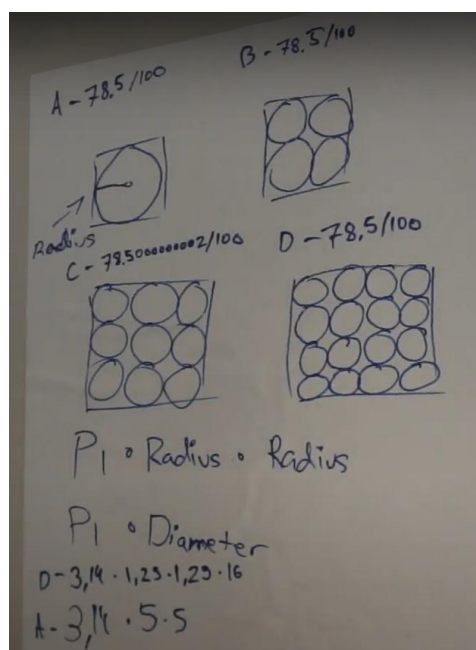 A - 78.5/100
B - 78.5/100
Radius
C - 78.5000000002/100
D - 78,5/100
PI • Radius • Radius
PI • Diameter
D - 3,14 · 1,25 · 1,25 · 16
A - 3,14 · 5 · 5